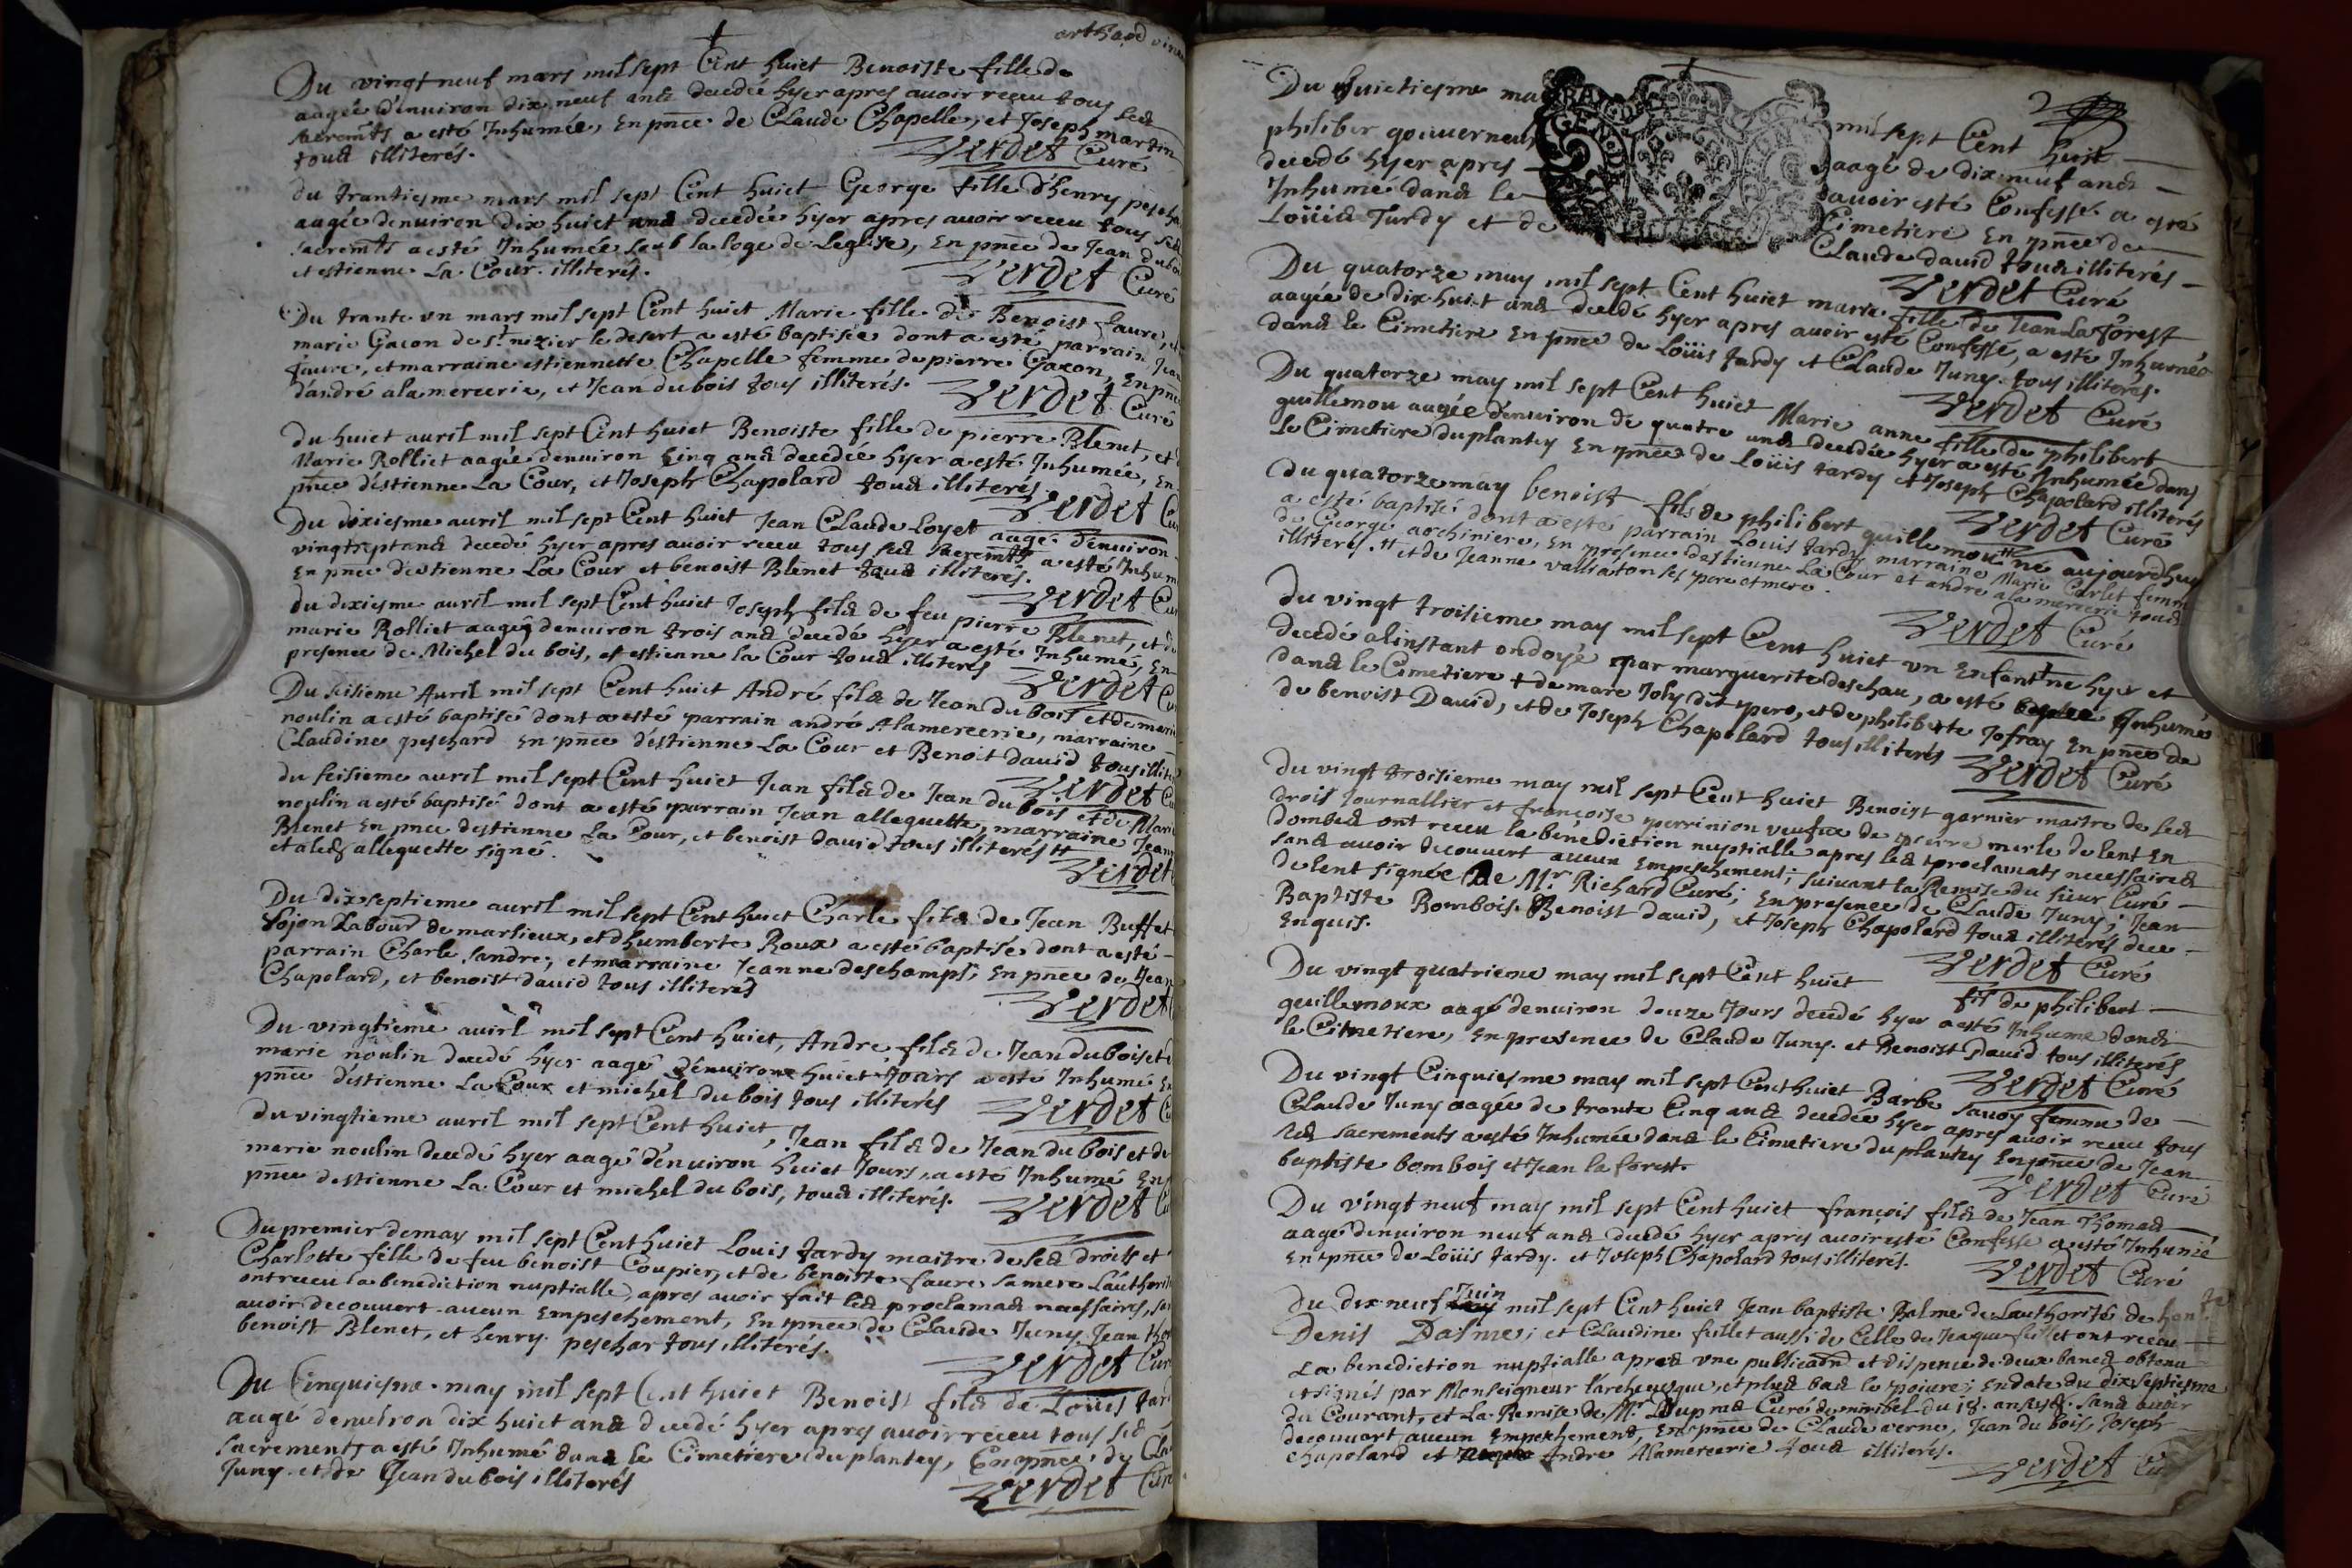 arthaud
Du vingt neuf mars mil sept Cent huict Benoiste fille de
aagée d'enuiron dix neuf ans decedée hyer apres auoir receu tous ses
sacremts a esté Inhumée, En pnce de Claude Chapelle, et Joseph martin
tous illiterés.
Verdet Curé
du trantiesme mars mil sept Cent huict George fille d'henry pescha
aagée denuiron dix huict ans decedée hyer apres auoir receu tous ses
sacremts a esté Inhumée soub la loge de Leglise, En pnce de Jean dubo
et estienne La Cour. illiterés.
Verdet Curé
Du trante vn mars mil sept Cent huict Marie fille de Benoist faure, et
marie Gacon de st. nizier le desert a esté baptisée dont a esté parrain Jean
faure, et marraine estiennette Chapelle femme de pierre Gacon, En pnce
d'andré alamercerie, et Jean du bois tous illiterés.
Verdet Curé
du huict auril mil sept Cent huict Benoiste fille de pierre Blenet, et
Marie Rolliet aagée denuiron Cinq ans decedée hyer a esté Inhumée, En
pnce d'estienne La Cour, et Joseph Chapolard tous illiterés.
Verdet Cu
Du dixiesme auril mil sept Cent huict Jean Claude Loyet aagé d'enuiron
vingt sept ans decedé hyer apres auoir receu tous ses sacremts a esté Inhum
En pnce d'estienne La Cour et benoist Blenet tous illiterés.
Verdet Cur
du dixiesme auril mil sept Cent huict Joseph fils de feu pierre Blenet, et de
marie Rolliet aagé denuiron trois ans decedé hyer a esté Inhumé, En
presence de Michel du bois, et estienne la Cour tous illiterés
Verdet Cu
Du seisieme Auril mil sept Cent huict André fils de Jean du bois et de marie
noulin a esté baptisé dont a esté parrain andré Alamercerie, marraine
Claudine peschard En pnce d'estienne La Cour et Benoit dauid tous illite
Verdet Cu
du seisieme auril mil sept Cent huict Jean fils de Jean du bois et de Marie
noulin a esté baptisé dont a esté parrain Jean alleguette, marraine Jeann
Blenet En pnce destienne La Cour, et benoist dauid tous illiterés
et aleds alleguette signé.
Verdet
Du dix septieme auril mil sept Cent huict Charle fils de Jean Buffet
Labour de marlieux, et d'humberte Roux a esté baptisé dont a esté
parrain Charle sandre, et marraine Jeanne deschamps, En pnce de Jean
Chapolard, et benoist dauid tous illiterés
Verdet
Du vingtieme auirl mil sept Cent huict, André fils de Jean du bois et
marie noulin decedé hyer aagé d'enuiron huict Jours a esté Inhumé En
pnce d'estienne La Cour et michel du bois tous illiterés
Verdet C
du vingtieme auril mil sept Cent huict, Jean fils de Jean du bois et de
marie noulin decedé hyer aagé d'enuiron huict Jours, a esté Inhumé En
pnce destienne La Cour et michel du bois, tous illiterés.
Verdet Cu
Du premier de may mil sept Cent huict Louis tardy maitre de ses droits et
Charlotte fille de feu benoist Coupier, et de benoiste faure sa mere Lauthorit
ont receu la benediction nuptialle apres auoir fait les proclamas necessaires, san
auoir decouuert aucun Empeschement, En pnce de Claude Juny, Jean tho
benoist Blenet, et henry peschar tous illiterés.
Verdet Cur
Du Cinquiesme may mil sept Cent huict Benoist fils de Louis tar
aagé denuiron dix huict ans decedé hyer apres auoir receu tous ses
sacrements a esté Inhumé dans le Cimetiere du plantey, En pnce de Cla
Juny et de Jean du bois illiterés
Verdet Curé
2
Du huictiesme ma mil sept Cent huit
philiber gouuerneur aagé de dix neuf ans
decedé hyer apres auoir esté Confessé a esté
Inhumé dans le Cimetiere En pnce de
Loüis Tardy et de Claude dauid tous illiterés
Verdet Curé
Du quatorze may mil sept Cent huict marie fille de Jean La forest
aagée de dix huit ans decedé hyer apres auoir esté Confessé, a esté Inhumée
dans le Cimetiere En pnce de Loüis tardy et Claude Juny. tous illiterés.
Verdet Curé
Du quatorze may mil sept Cent huict Marie anne fille de philibert
guillemou aagée d'enuiron de quatre ans decedée hyer a esté Inhumée dans
le Cimetiere du plantey En pnce de Loüis tardy et Joseph Chapolard illiterés
Verdet Curé
du quatorze may benoist fils de philibert guillemou né aujourd'huy
a esté baptisé dont a esté parrain Louis tardy marraine Marie Carlet femme
de George archiniere, En presence destienne La Cour et andré alamercerie tous
illiteres. et de Jeanne valliaton ses pere et mere.
Verdet Curé
Du vingt troisieme may mil sept Cent huict vn Enfant né hyer et
decedé alinstant ondoyé par marguerite deschau, a esté Inhumé
dans le Cimetiere de marc Joly dit pero, et de philiberte Jofray En pnce de
de benoist Dauid, et de Joseph Chapolard tous illiterés
Verdet Curé
Du vingt troisieme may mil sept Cent huict Benoist garnier maitre de ses
drois Journallier et françoise perrinion veufue de pierre merle de lent En
dombes ont receu la benediction nuptialle apres les proclamats necessaires
sans auoir decouuert aucun Empeschement; suiuant la Remise du sieur Curé
de lent signée De Mr Richard Curé; En presence de Claude Juny; Jean
Baptiste Bombois. Benoist dauid, et Joseph Chapolard tous illiterés dece
Enquis.
Verdet Curé
Du vingt quatrieme may mil sept Cent huict fil de philibert
guillemoux aagé denuiron douze Jours decedé hyer a esté Inhumé dans
le Cimetiere, En presence de Claude Juny. et Benoist Dauid tous illiterés
Verdet Curé
Du vingt Cinquiesme may mil sept Cent huict Barbe sauoy femme de
Claude Juny aagée de trante Cinq ans decedée hyer apres auoir receu tous
ses sacrements a esté Inhumée dans le Cimetiere du plantey En pnce de Jean
baptiste bombois et Jean la forest.
Verdet Curé
Du vingt neuf may mil sept Cent huict françois fils de Jean Thomas
aagé denuiron neuf ans decedé hyer apres auoir esté Confessé a esté Inhumé
En pnce de Loüis tardy. et Joseph Chapolard tous illiterés.
Verdet Curé
Du dix neuf Juin mil sept Cent huict Jean baptiste Dalme de Lauthorité de
Denis Dalme; et Claudine fuillet aussi de Celle de Jaque fuillet ont receu
La benediction nuptialle apres vne publicaon et dispence de deux bancs obtenu
et signés par Monseigneur l'archeuesque, et plus bas le poiure; En date du dix septiesme
du Courant, et La Remise de Mr. Dupras Curé de miribel du 18. sans auoir
decouuart aucun Empeschement, En pnce de Claude verne, Jean du bois, Joseph
chapolard et Andre Alamercerie tous illiterés.
Verdet Cu